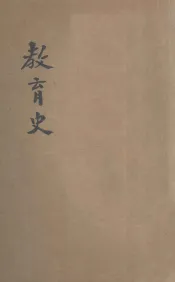 教育史